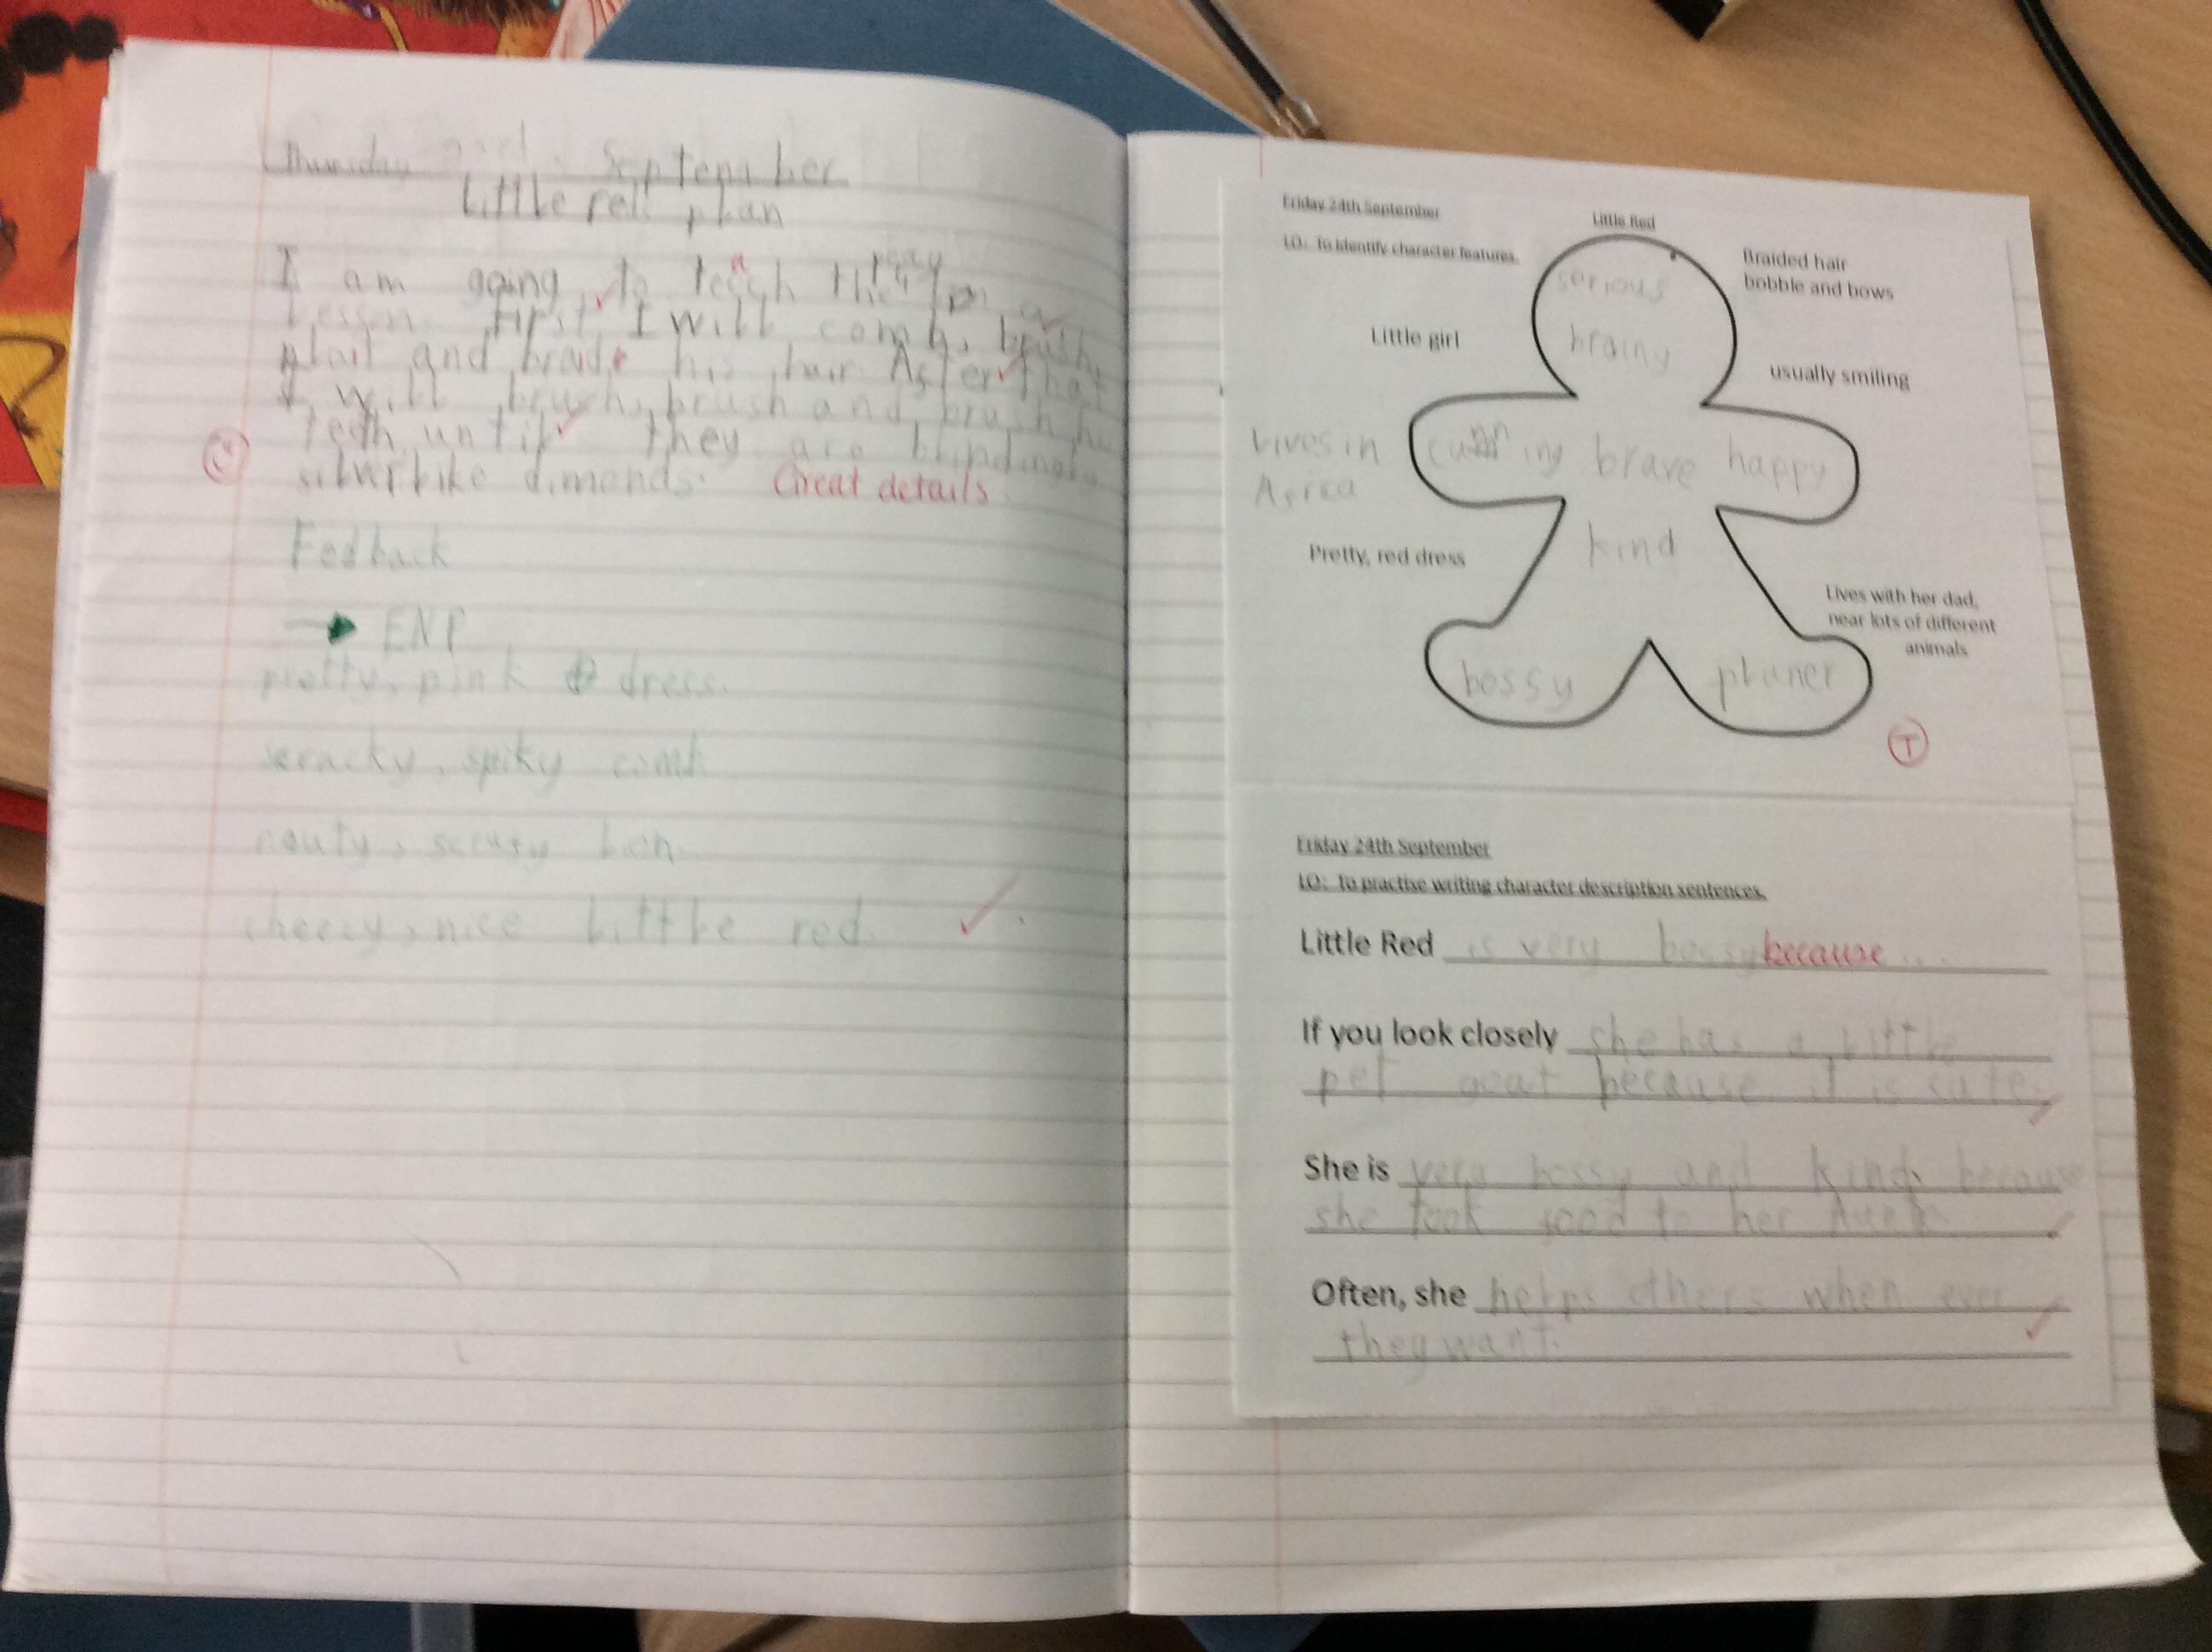 Thursday September
Little red plan
I am going to teach the
lesson. First I will comb, brush,
plait and braid his hair After that
I will brush, brush and brush his
teeth until they are blindingly
silver like dimonds. Great details
Fedback
→ ENP
pretty, pink dress.
spiky comb
lion
cheezy, nice little red
Friday 24th September
Little Red
LO: To identify character features.
Braided hair
bobble and bows
serious
Little girl
brainy
usually smiling
Lives in
Africa
cunning brave happy
kind
Pretty, red dress
Lives with her dad,
near lots of different
animals
bossy planer
T
Friday 24th September
LO: To practise writing character description sentences.
Little Red is very bossy because...
If you look closely she has a little
pet goat because it is cute.
She is very bossy and kind, because
she took food to her
Often, she helps others when ever
they want.